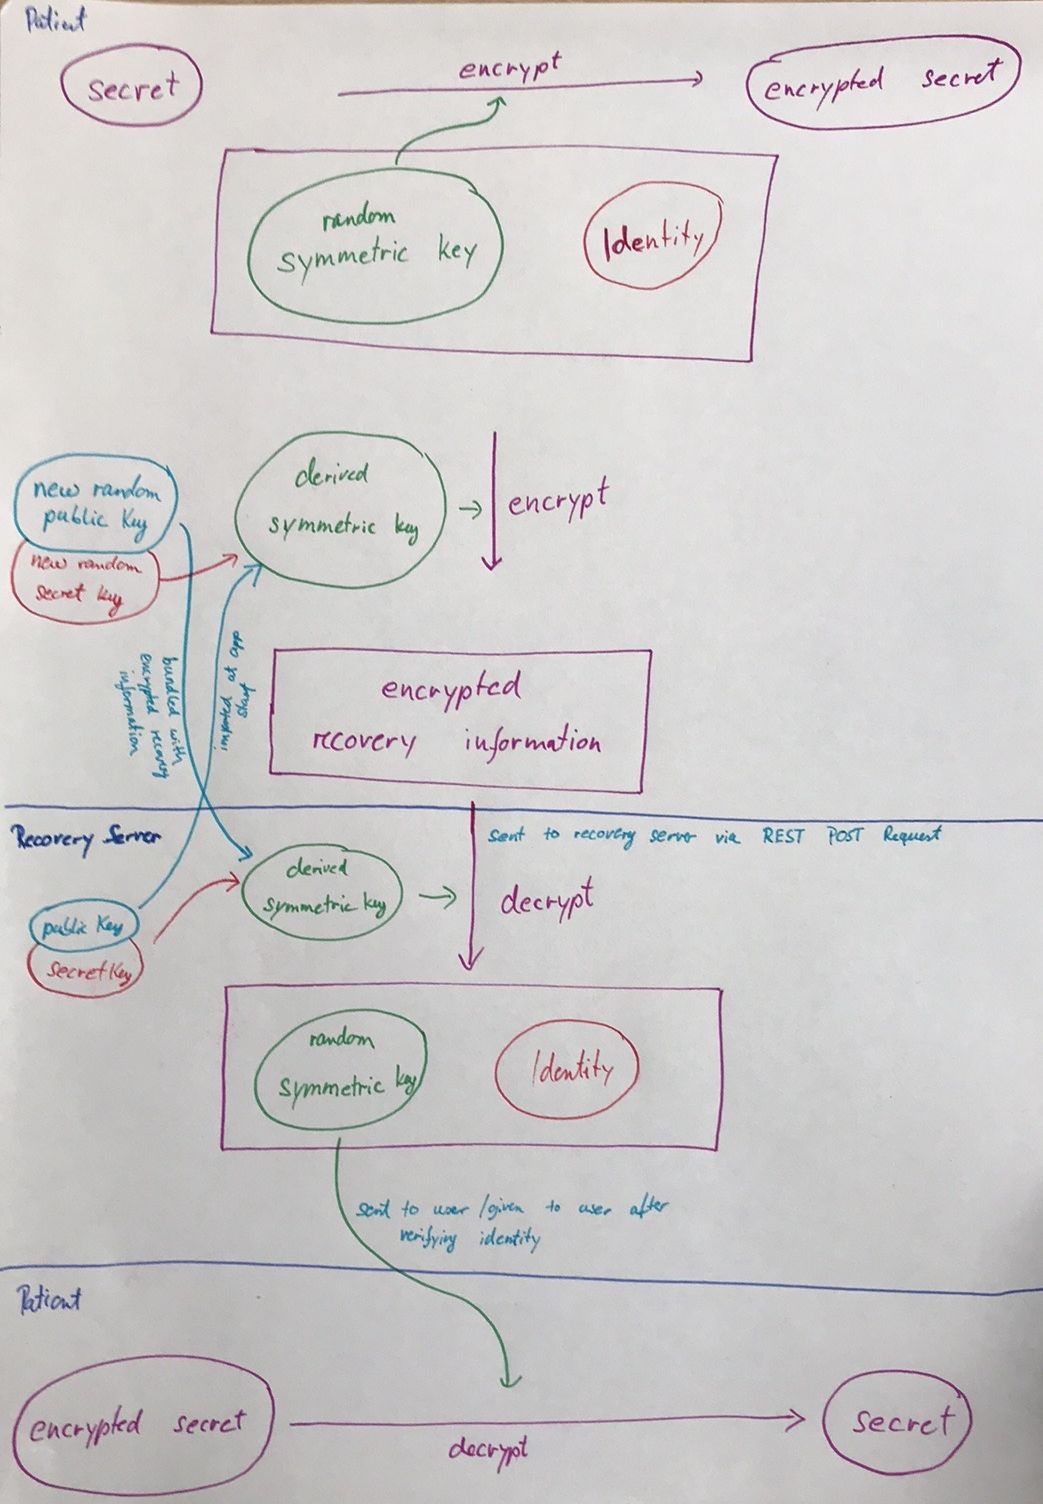 Patient
secret
encrypt
encrypted secret
random
symmetric key
Identity
derived
symmetric key
encrypt
new random
public Key
new random
secret key
bundled with
encrypted recovery
information
app
start
of
encrypted
recovery information
Recovery Server
sent to recovery server via REST POST Request
derived
symmetric key
decrypt
public Key
secret Key
random
symmetric key
Identity
sent to user / given to user after
verifying identity
Patient
encrypted secret
decrypt
secret